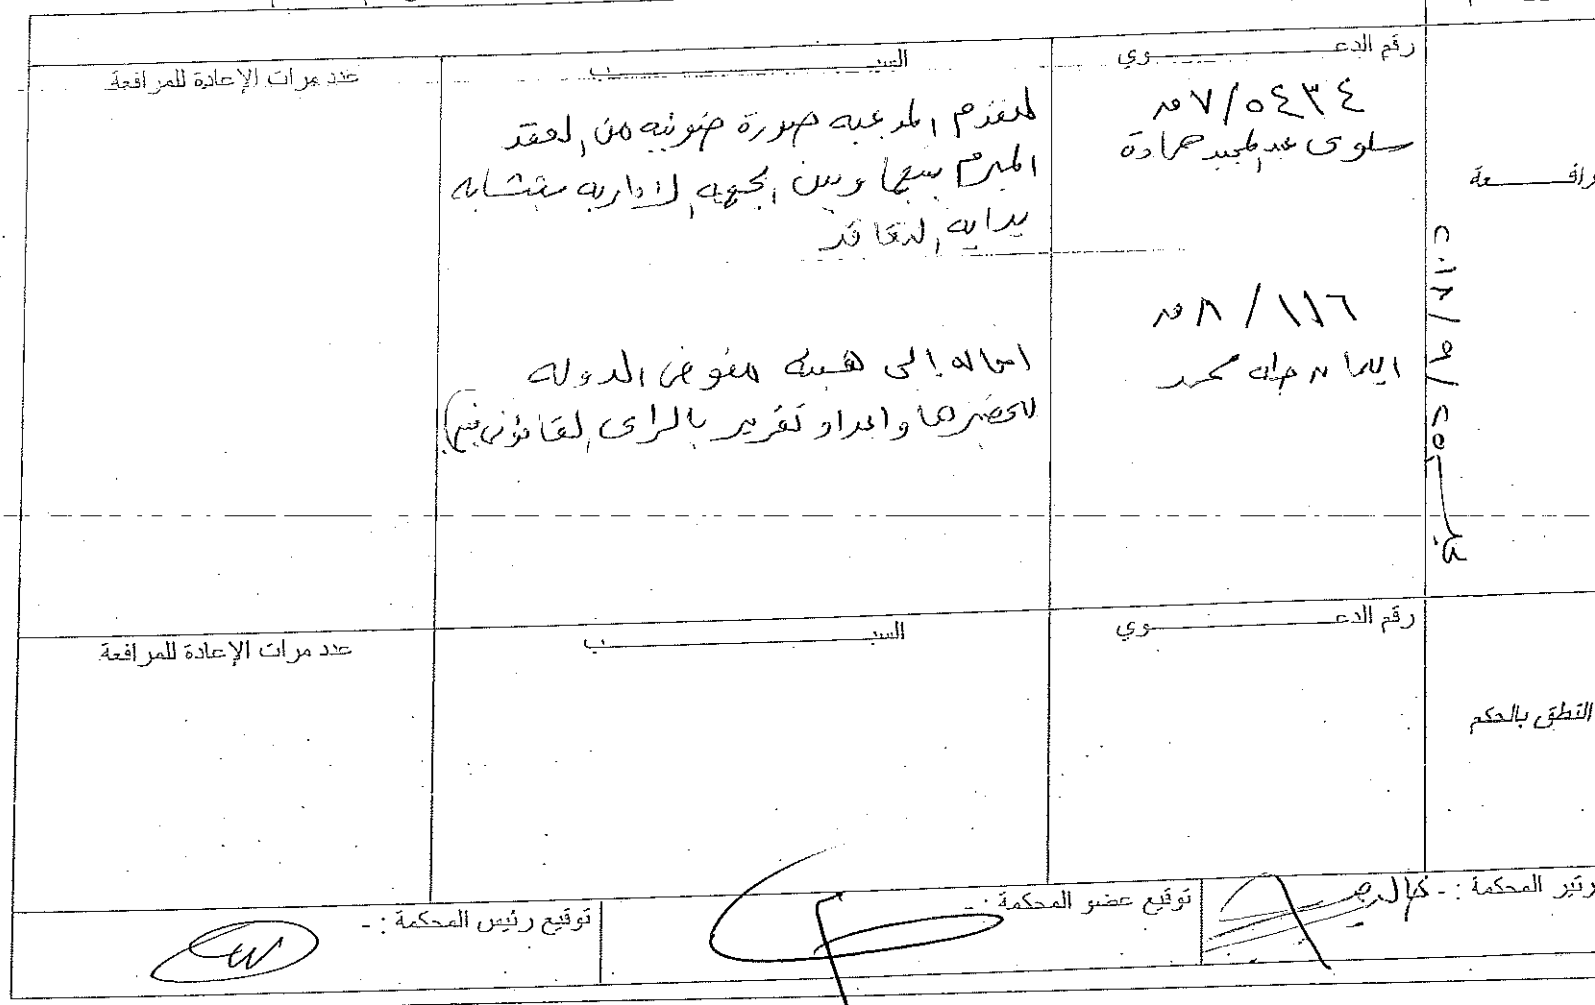 رقم الدعـــــوي
السبـــــب
عدد مرات الإعادة للمرافعة
٥٤٣٤/٧ق
سلوى عبد المجيد حمادة
لتقدم المدعيه صورة ضوئيه من العقد
المبرم بينها وبين الجهه الاداريه
بدايه التعاقد
١١٦/٨ق
ايمان طه محمد
احاله إلى هيئه مفوضى الدوله
لتحضيرها واعداد تقرير بالراى القانونى
رافـــــعة
٢٠١٨/٩/٢٥
رقم الدعـــــوي
السبـــــب
عدد مرات الإعادة للمرافعة
النطق بالحكم
المحكمة :-
توقيع عضو المحكمة :-
توقيع رئيس المحكمة :-